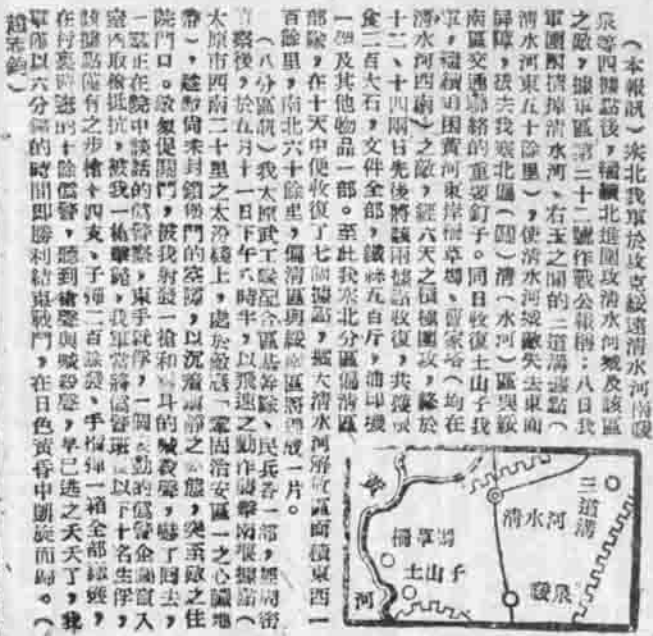 （本報訊）來北我軍於攻克綏遠清水河南暖
泉等四據點後，繼續北進圍攻清水河城及該區
之敵，據軍區第二十二號作戰公報稱：八日我
軍團酣清掃清水河、右玉之間的三道溝據點（
清水河東五十餘里），使清水河城敵失去東面
屏障，拔去我塞北區（圖）清（水河）區與綏
南區交通聯絡的重要釘子。同日收復土山子我
軍，繼續迫困黃河東岸楊草塢、曹家塔（均在
清水河西南）之敵，經六天之積極圍攻，終於
十二、十四兩日先後將該兩據點收復，共獲
食二百大石，文件全部，鐵絲五百斤，油印機
一個及其他物品一部。至此我來北分區偏清區
部隊，在十天中便收復了七個據點，擴大清水河解放區面積東西一
百餘里，南北六十餘里，偏清區與綏南區將連成一片。
（八分區訊）我太原武工隊配合區基幹隊、民兵各一部，經周密
偵察後，於五月十一日下午六時半，以飛速之動作襲擊南堰據點（
太原市西南二十里之太汾綫上，處於敵寇「鞏固治安區」之心臟地
帶），趁敵尚未封鎖碉門的空隙，以沉着肅靜之姿態，突至敵之住
院門口。敵氣促關門，被我射殺一槍和 斗的喊殺聲，嚇了回去，
一羣正在院中談話的僞警察，束手就俘，一個 動的僞警企圖竄入
室內取槍抵抗，被我一槍擊斃，我軍當將僞警班 以下十名生俘，
該據點僅有之步槍十四支、子彈二百 發、手榴彈一箱全部繳獲，
在村裏 逛的十餘僞警，聽到槍聲與喊殺聲，早已逃之夭夭了，我
軍僅以六分鐘的時間即勝利結束戰鬥，在日色黃昏中凱旋而歸。（
趙 ）
三道溝
清水河
暖泉
楊草塢
土山子
黃
河